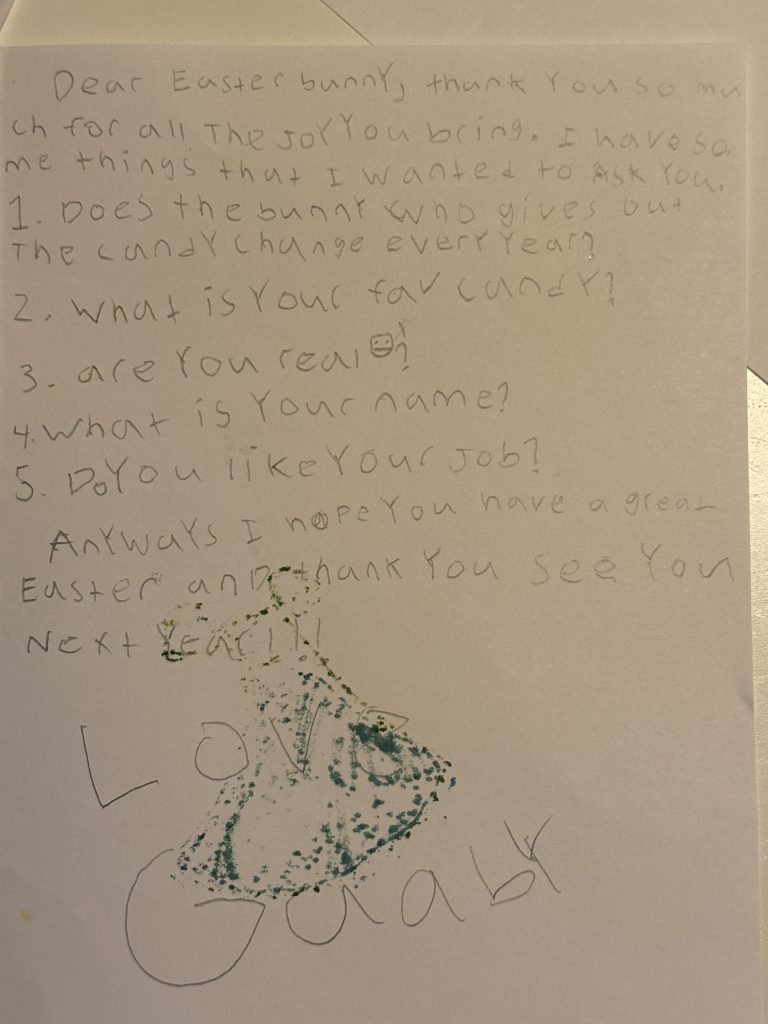 Dear Easter bunny, thank You so mu
ch for all The joy You bring. I have so
me things that I wanted to Ask You.
1. Does the bunny who gives out
The candy change every Year?
2. What is Your fav candy?
3. are You real?
4. What is Your name?
5. Do You like Your Job?
Anyways I hope You have a great
Easter and thank You see You
Next Year!!!
Love
Gaaby